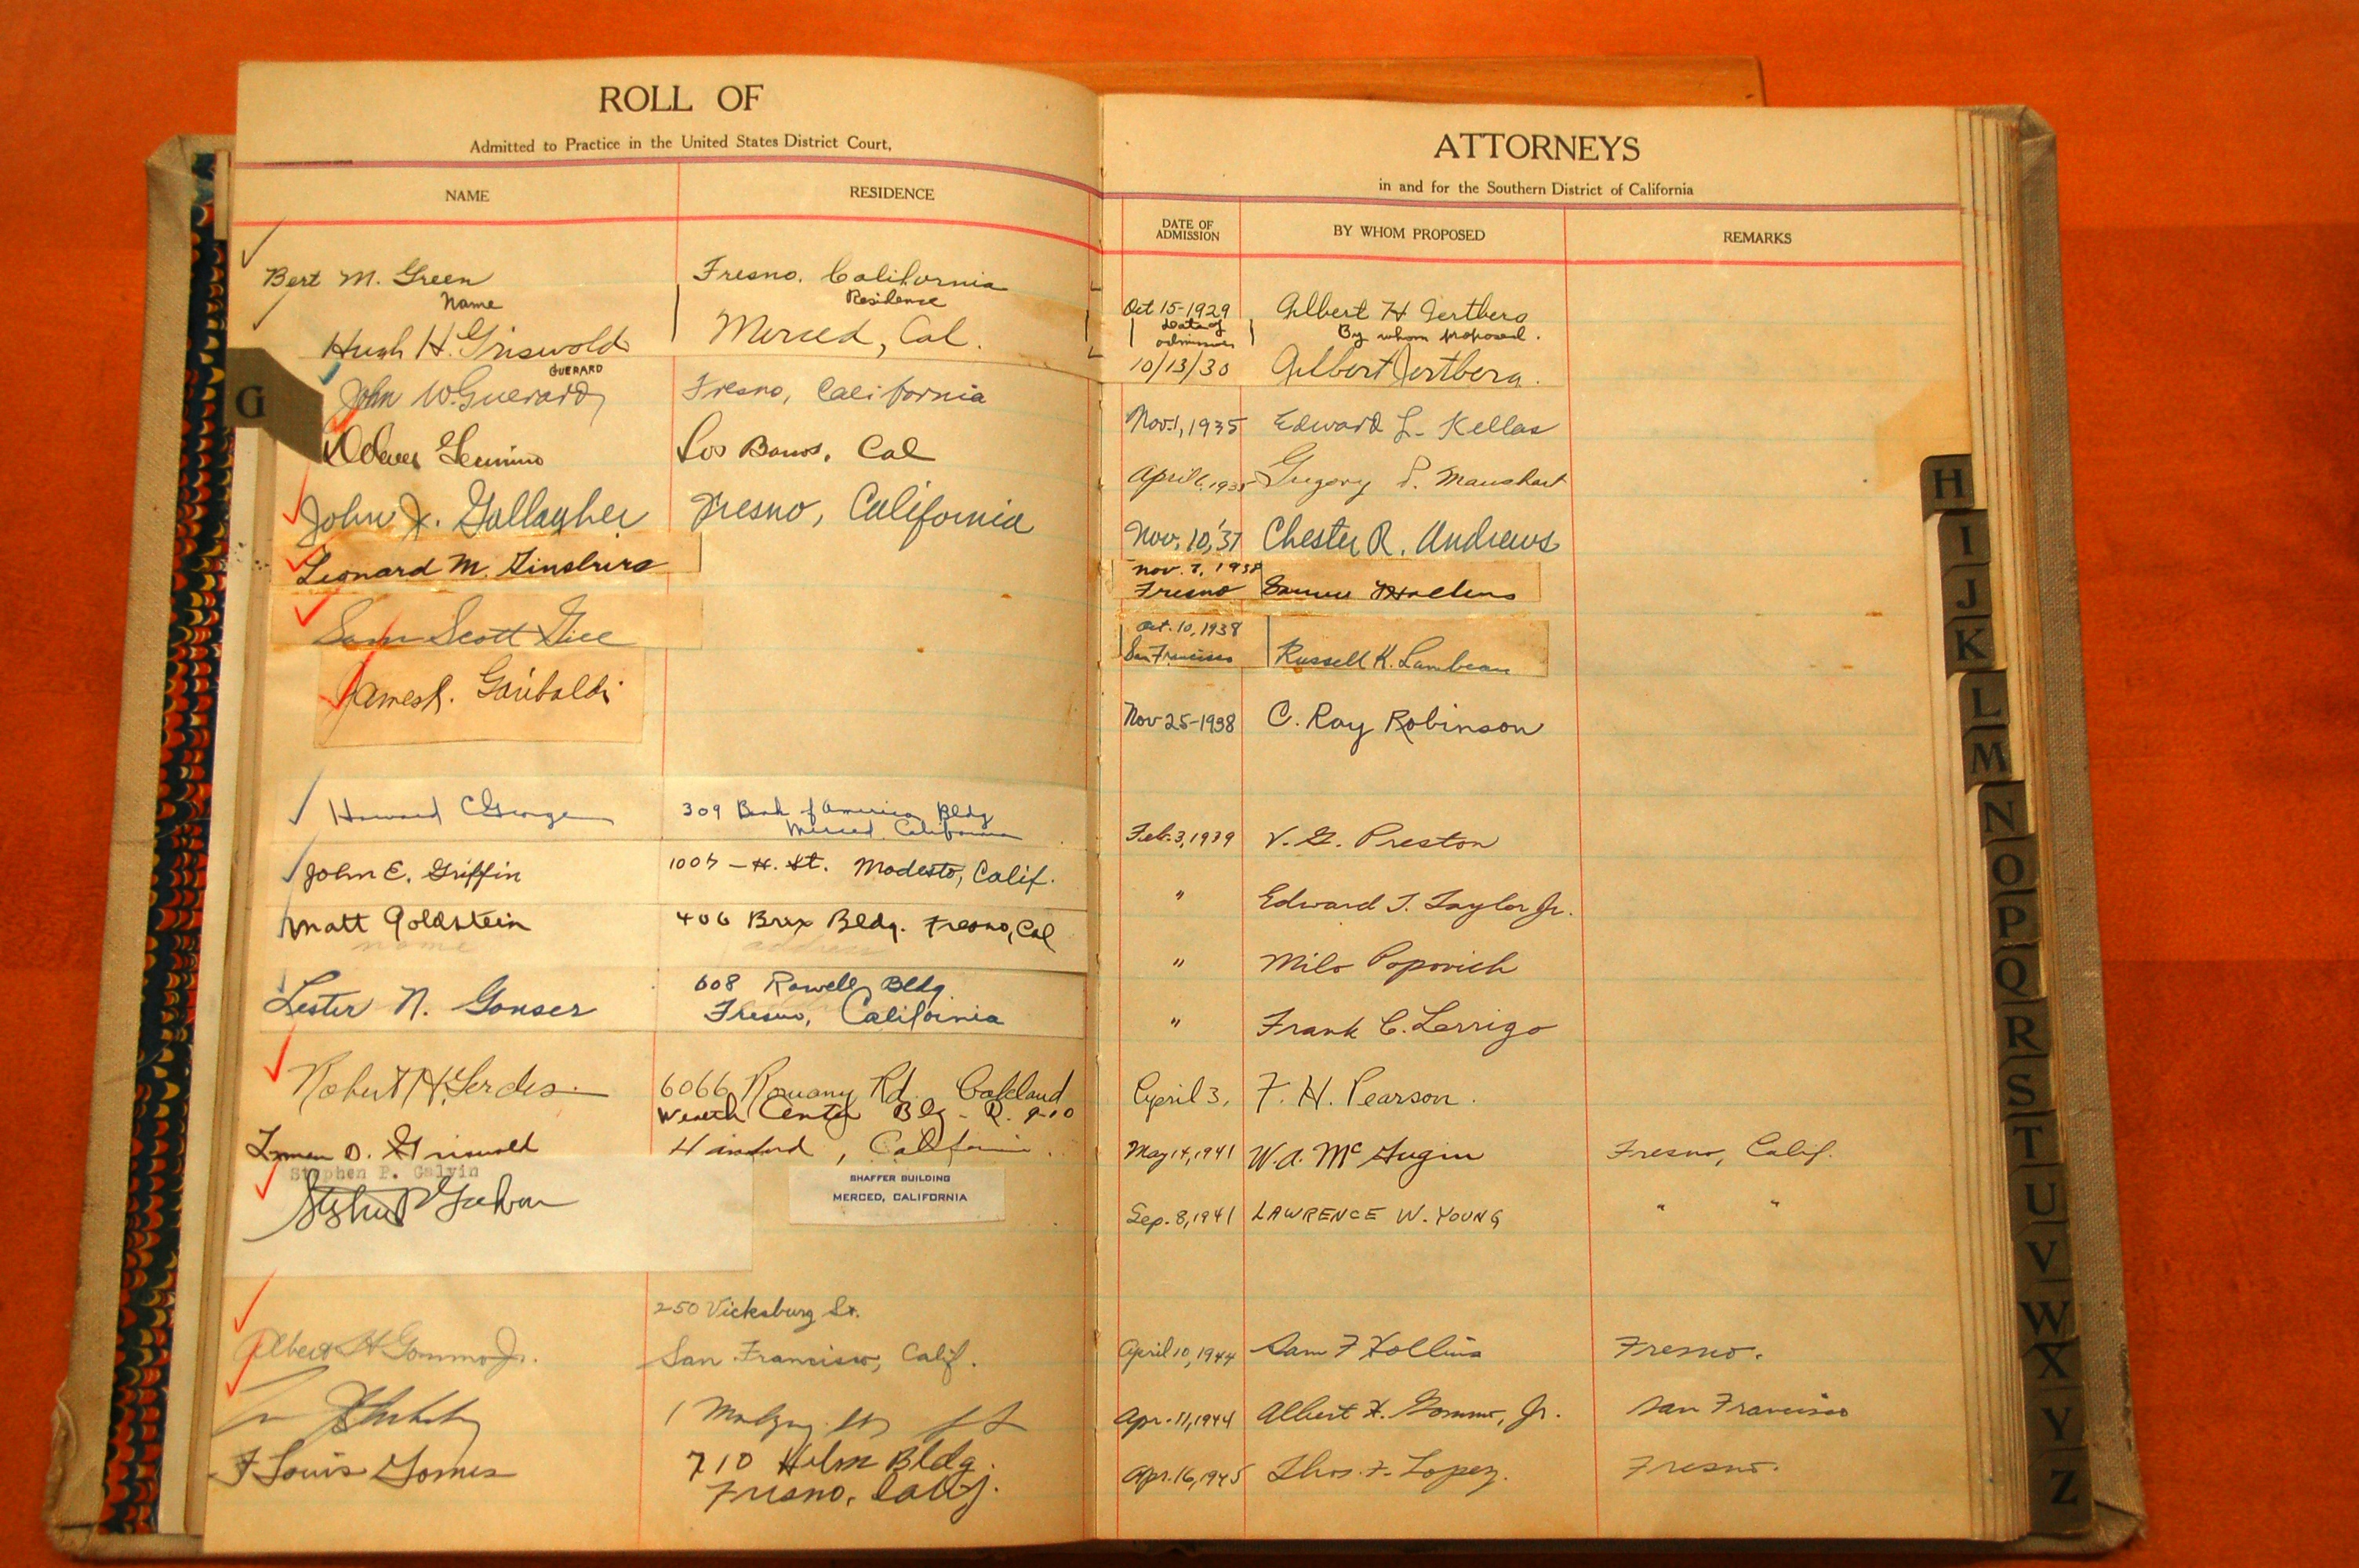 ROLL OF
Admitted to Practice in the United States District Court,
NAME
RESIDENCE
Bert M. Green
Fresno, California
Name
Residence
Hugh H. Griswold
Merced, Cal.
GUERARD
John W. Guerard
Fresno, California
G
Los Banos, Cal
John J. Gallagher
Fresno, California
Leonard M. Ginsburg
Sam Scott Gill
James R. Garibaldi
Howard C George
309 Bank of America Bldg
Merced California
John E. Griffin
1007 - H. St. Modesto, Calif.
Matt Goldstein
406 Brix Bldg. Fresno, Cal
name
address
Lester N. Gonser
608 Rowell Bldg.
Fresno, California
Robert H. Gerdes
6066 Rd. Oakland
Center Blg - R. 9-10
Lyman D. Griswold
Hanford, California.
Stephen P. Galvin
SHAFFER BUILDING
MERCED, CALIFORNIA
Stephen P Galvin
250 Vicksburg St.
Albert H Gommo Jr.
San Francisco, Calif.
F Louis Gomes
710 Helm Bldg.
Fresno, Calif.
ATTORNEYS
in and for the Southern District of California
DATE OF
ADMISSION
BY WHOM PROPOSED
REMARKS
Oct 15-1929 Gilbert H Jertberg
Date of
admission
By whom proposed.
10/13/30 Gilbert Jertberg.
Nov. 1, 1935 Edward L. Kellas
April 6, 1935 Gregory P. Maushart
Nov. 10, '37 Chester R. Andrews
Nov. 7, 1938
Fresno
Oct. 10, 1938
San Francisco
Russell K. Lambeau
Nov-25-1938 C. Ray Robinson
Feb. 3, 1939 V. G. Preston
" Edward T. Taylor Jr.
" Milo Popovich
" Frank C. Lerrigo
April 3, F. H. Pearson.
May 14, 1941 W. A. McGugin Fresno, Calif.
Sep. 8, 1941 LAWRENCE W. YOUNG " "
April 10, 1944 Sam F Hollins Fresno.
Apr. 11, 1944 Albert H. Gommo, Jr. San Francisco
Apr. 16, 1945 Thos. F. Lopez. Fresno.
H
I
J
K
L
M
N
O
P
Q
R
S
T
U
V
W
X
Y
Z